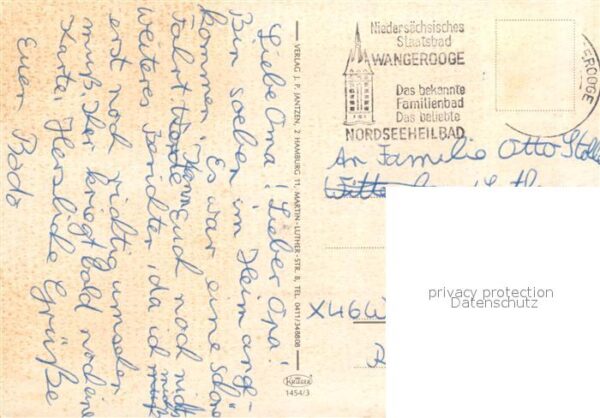 Liebe Oma! Lieber Opa!
Bin soeben im Heim ange-
kommen. Es war eine schöne
Fahrt. Kann Euch noch nicht
weiteres berichten, da ich muß
erst noch richtig umsehen
muß. Ihr kriegt bald noch eine
Karte. Herzliche Grüße
Euer Bodo
VERLAG J. P. JANTZEN, 2 HAMBURG 11, MARTIN-LUTHER-STR. 8, TEL. 0411/348808
Krüger
1454/3
Niedersächsisches
Staatsbad
WANGEROOGE
Das bekannte
Familienbad
Das beliebte
NORDSEEHEILBAD
EROOGE
An Familie Otto
X46
privacy protection
Datenschutz